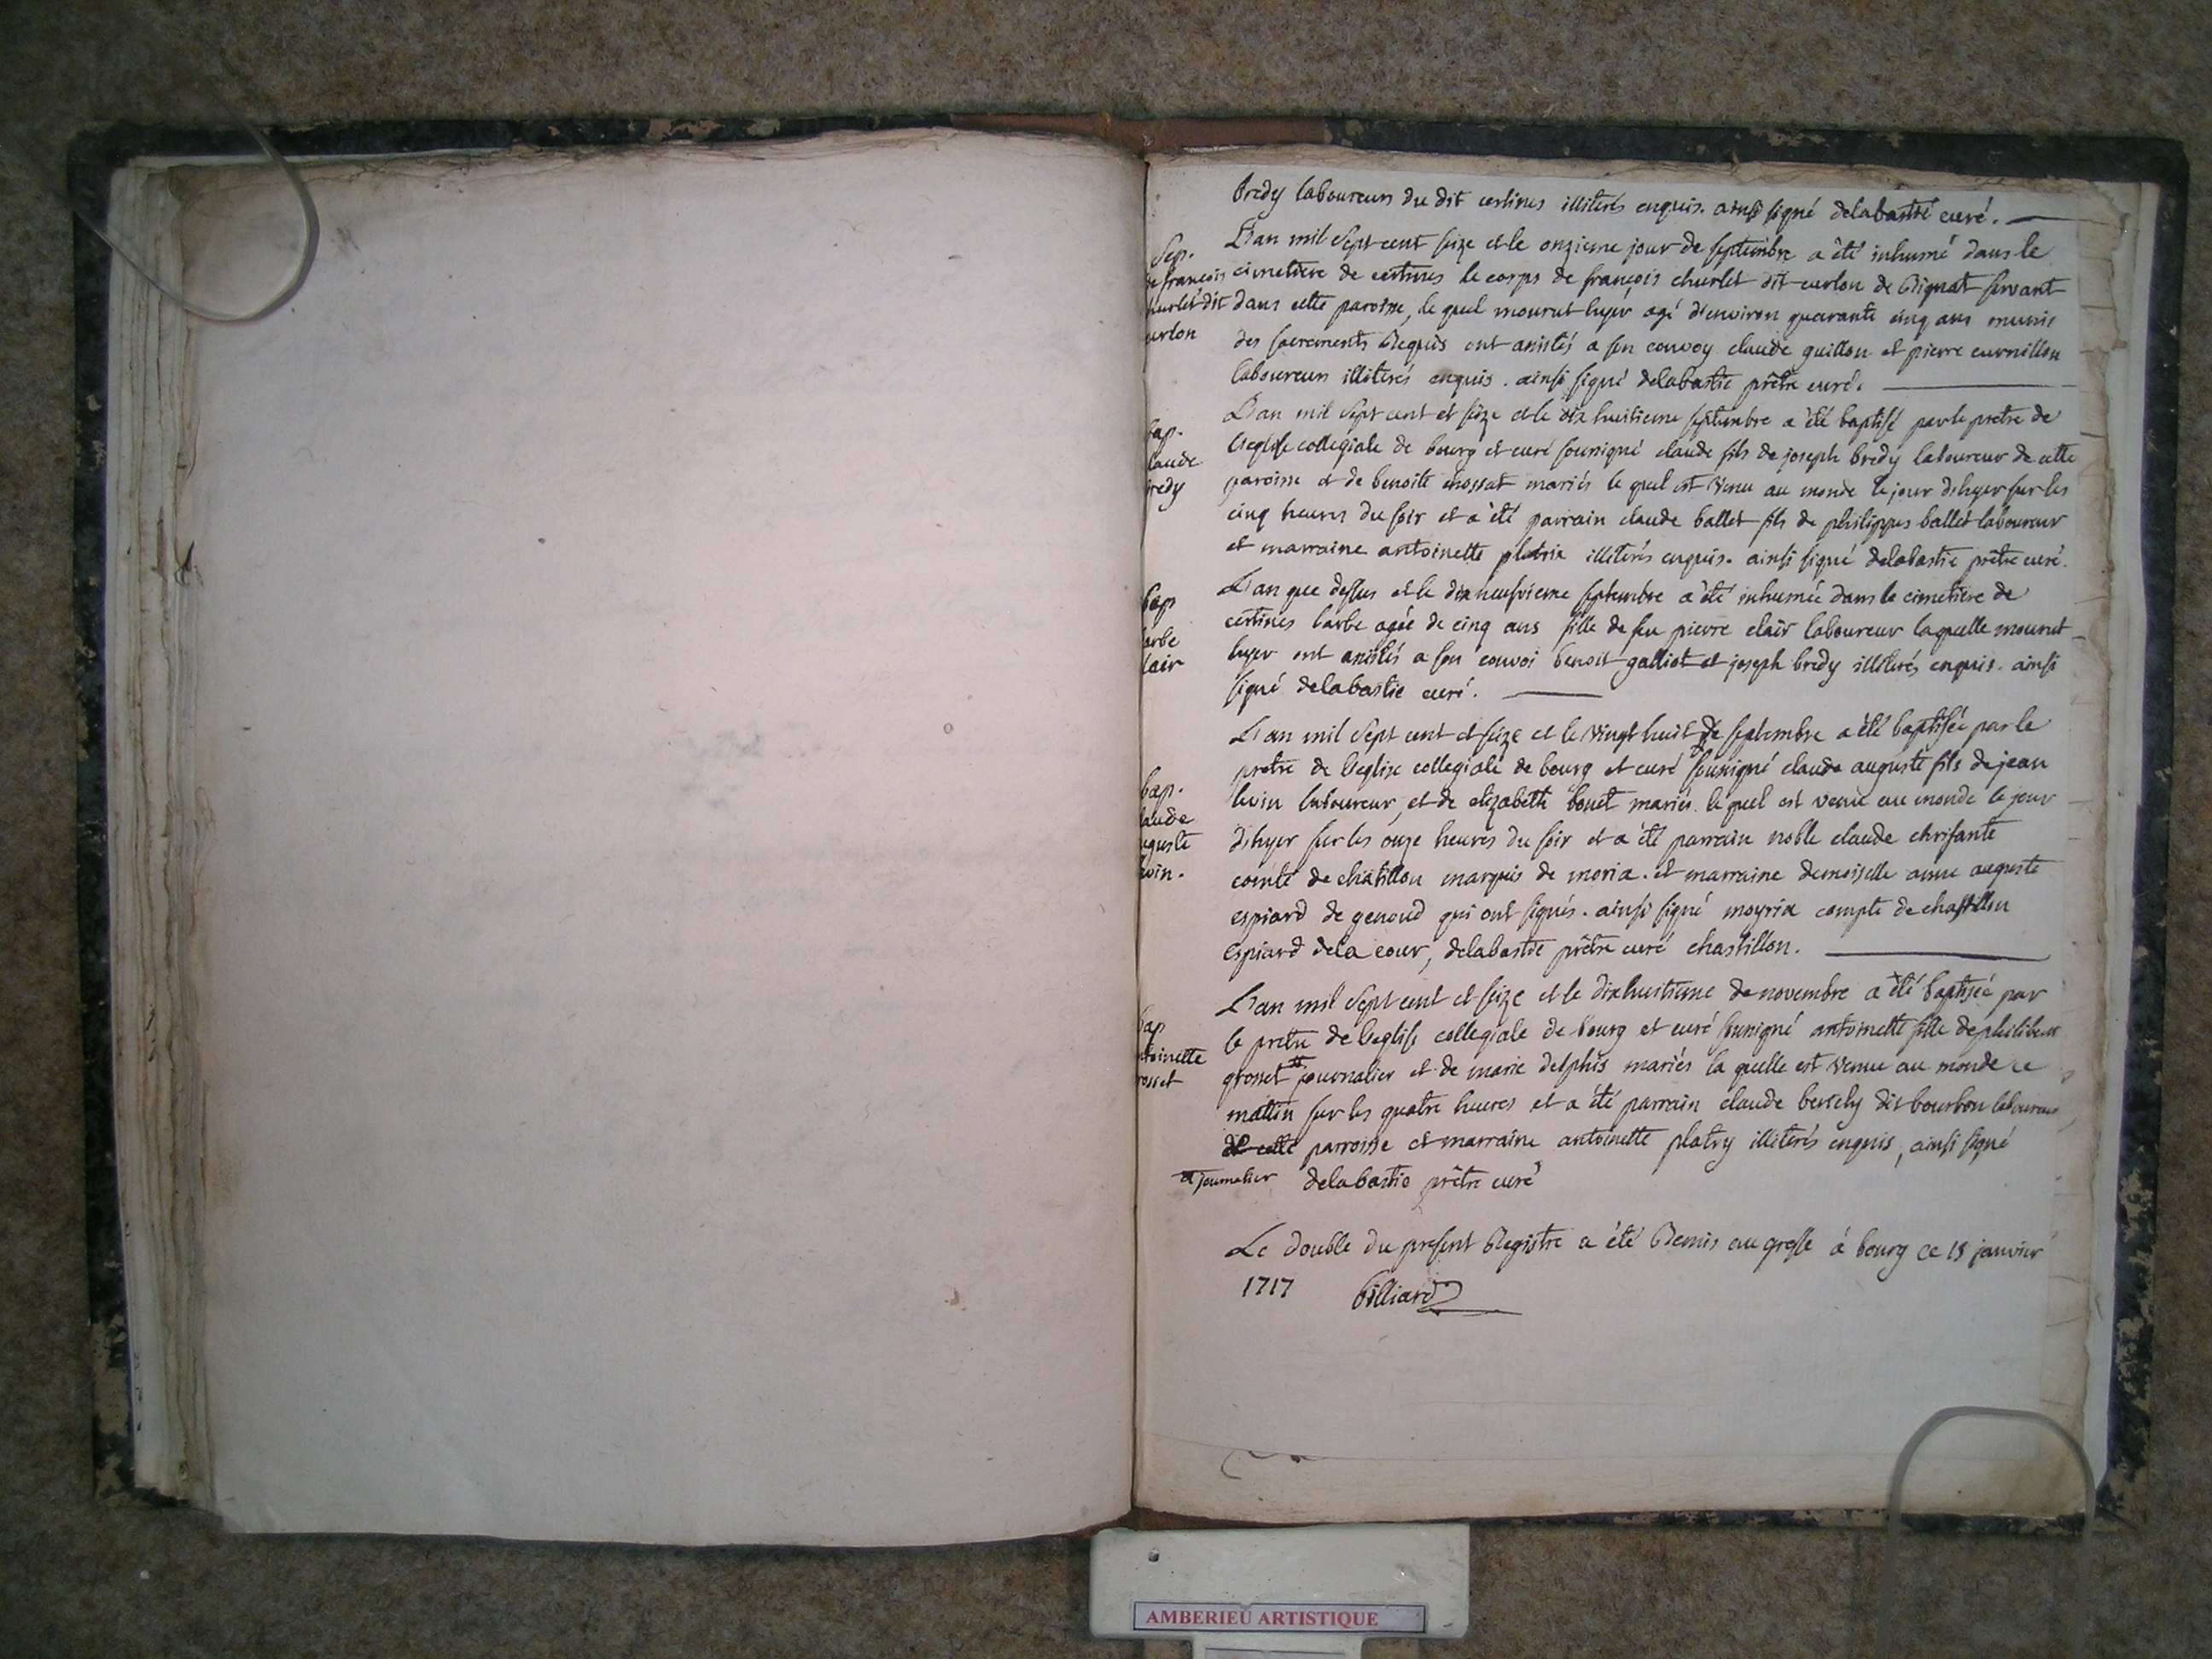 bredy laboureurs du dit certines illiterés enquis. ainsi signé delabastie curé.
Sep. de françois churlet dit curlon
L'an mil sept cent seize et le onzieme jour de septembre a été inhumé dans le
cimetiere de certines le corps de françois churlet dit curlon de Rignat servant
dans cette paroisse, le quel mourut hyér agé d'environ quarante cinq ans munis
des sacrements Requis ont assistés a son convoy claude guillon et pierre curnillon
laboureurs illiterés enquis. ainsi signé delabastie prêtre curé.
bap.
laude
bredy
L'an mil sept cent et seize et le dix huitieme septembre a été baptisé par le pretre de
l'eglise collegiale de bourg et curé sousigné claude fils de joseph bredy laboureur de cette
paroisse et de benoite mariés le quel est venu au monde le jour d'hyer sur les
cinq heures du soir et a été parrain claude ballet fils de philippes ballet laboureur
et marraine antoinette platrix illiterés enquis. ainsi signé delabastie prêtre curé.
bap
barbe
clair
L'an que dessus et le dix neufvieme septembre a été inhumée dans le cimetiere de
certines barbe agée de cinq ans fille de feu pierre clair laboureur laquelle mourut
hyer ont assistés a son convoi benoit galliot et joseph bredy illiterés enquis. ainsi
signé delabastie curé.
bap.
laude
uguste
L'an mil sept cent et seize et le vingt huit de septembre a été baptisée par le
pretre de l'eglise collegiale de bourg et curé sousigné claude auguste fils de jean
laboureur, et de elizabette bouet mariés. le quel est venu au monde le jour
d'hyer sur les onze heures du soir et a été parrain noble claude chrisante
comte de chatillon marquis de moria. et marraine demoiselle anne auguste
espiard de genoud qui ont signés. ainsi signé moyria compte de chastillon
espiard dela cour, delabastie prêtre curé chastillon.
bap
ntoinette
rosset
L'an mil sept cent et seize et le dixhuitieme de novembre a été baptisée par
le pretre de l'eglise collegiale de bourg et curé sousigné antoinette fille de philibert
grosset journalier et de marie delphis mariés la quelle est venue au monde ce
mattin sur les quatre heures et a été parrain claude bercely dit bourbon laboureur
de cette parroisse et marraine antoinette platry illiterés enquis, ainsi signé
journalier delabastie prêtre curé
Le double du present Registre a été Remis au greffe à bourg ce 18 janvier
1717 billiard
AMBERIEU ARTISTIQUE